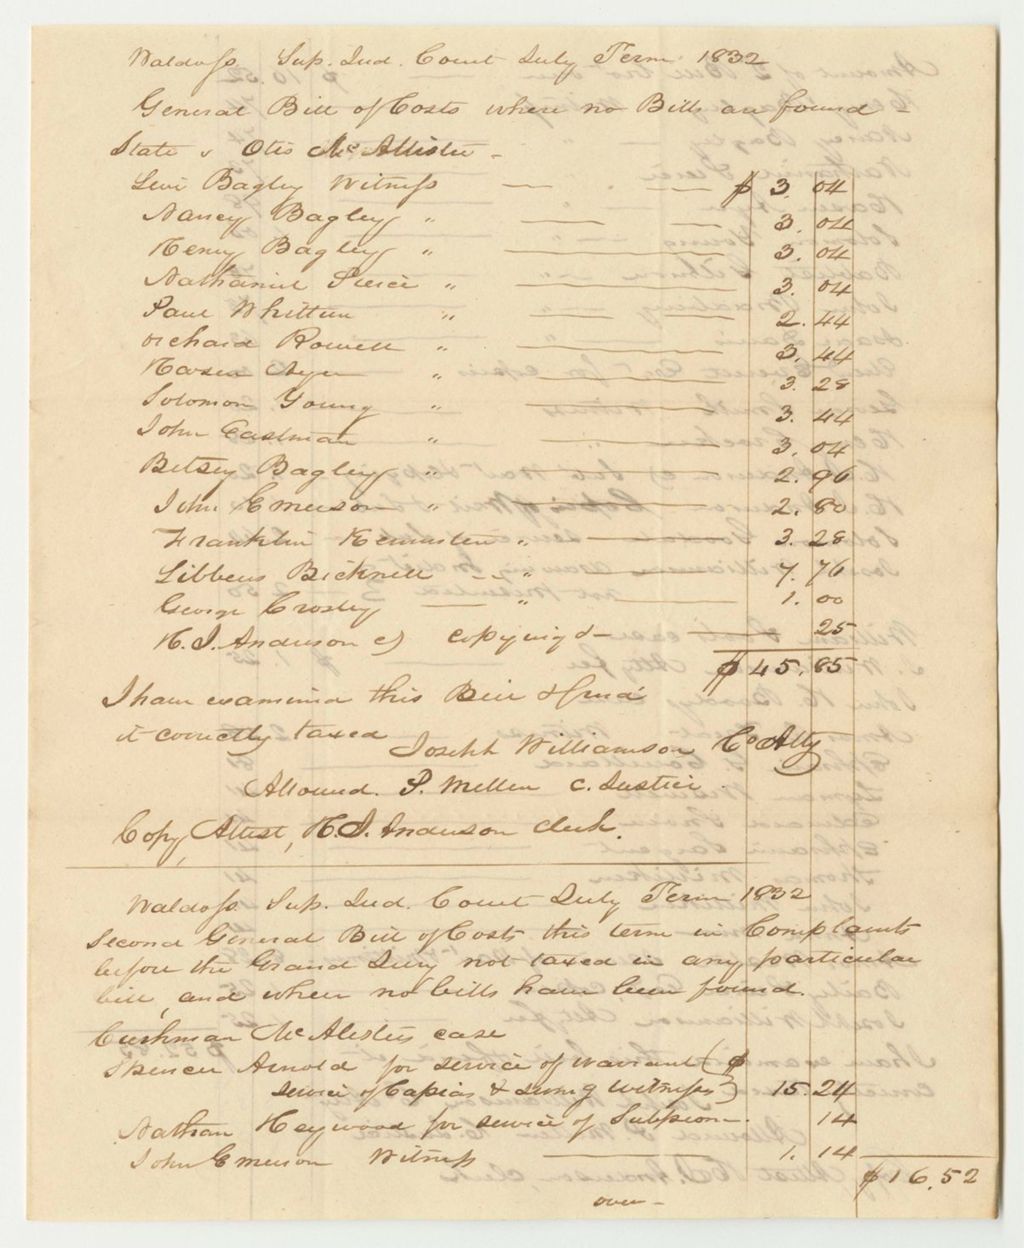 Waldo ss. Sup. Jud. Court July Term 1832
General Bill of Costs where no Bills are found -
State v Otis McAllister -
Levi Bagley Witness $ 3. 04
Nancy Bagley " 3. 04
Henry Bagley " 3. 04
Nathaniel Pierce " 3. 04
Paul Whitten " 2. 44
Orchard Rowell " 3. 44
Hazen Ayer " 3. 28
Solomon Young " 3. 44
John Eastman " 3. 04
Betsey Bagley " 2. 96
John Emerson " 2. 80
Franklin " 3. 28
Libbeus Bicknell " 7. 76
George Crosby " 1. 00
H. J. Anderson copying &c 25
$ 45. 85
I have examined this Bill & find
it correctly taxed
Joseph Williamson Co Atty
Allowed. P. Mellen C. Justice
Copy, Attest, H. J. Anderson Clerk.
Waldo ss. Sup. Jud. Court July Term 1832
Second General Bill of Costs this term in Complaints
before the Grand Jury not taxed in any particular
bill, and where no bills have been found.
Cushman McAlisters case
Spencer Arnold for service of warrant ( $
service of Capias & summg witnesses } 15. 24
Nathan Heywood for service of Subpoena. 14
John Emerson Witness 1. 14
$16.52
over -